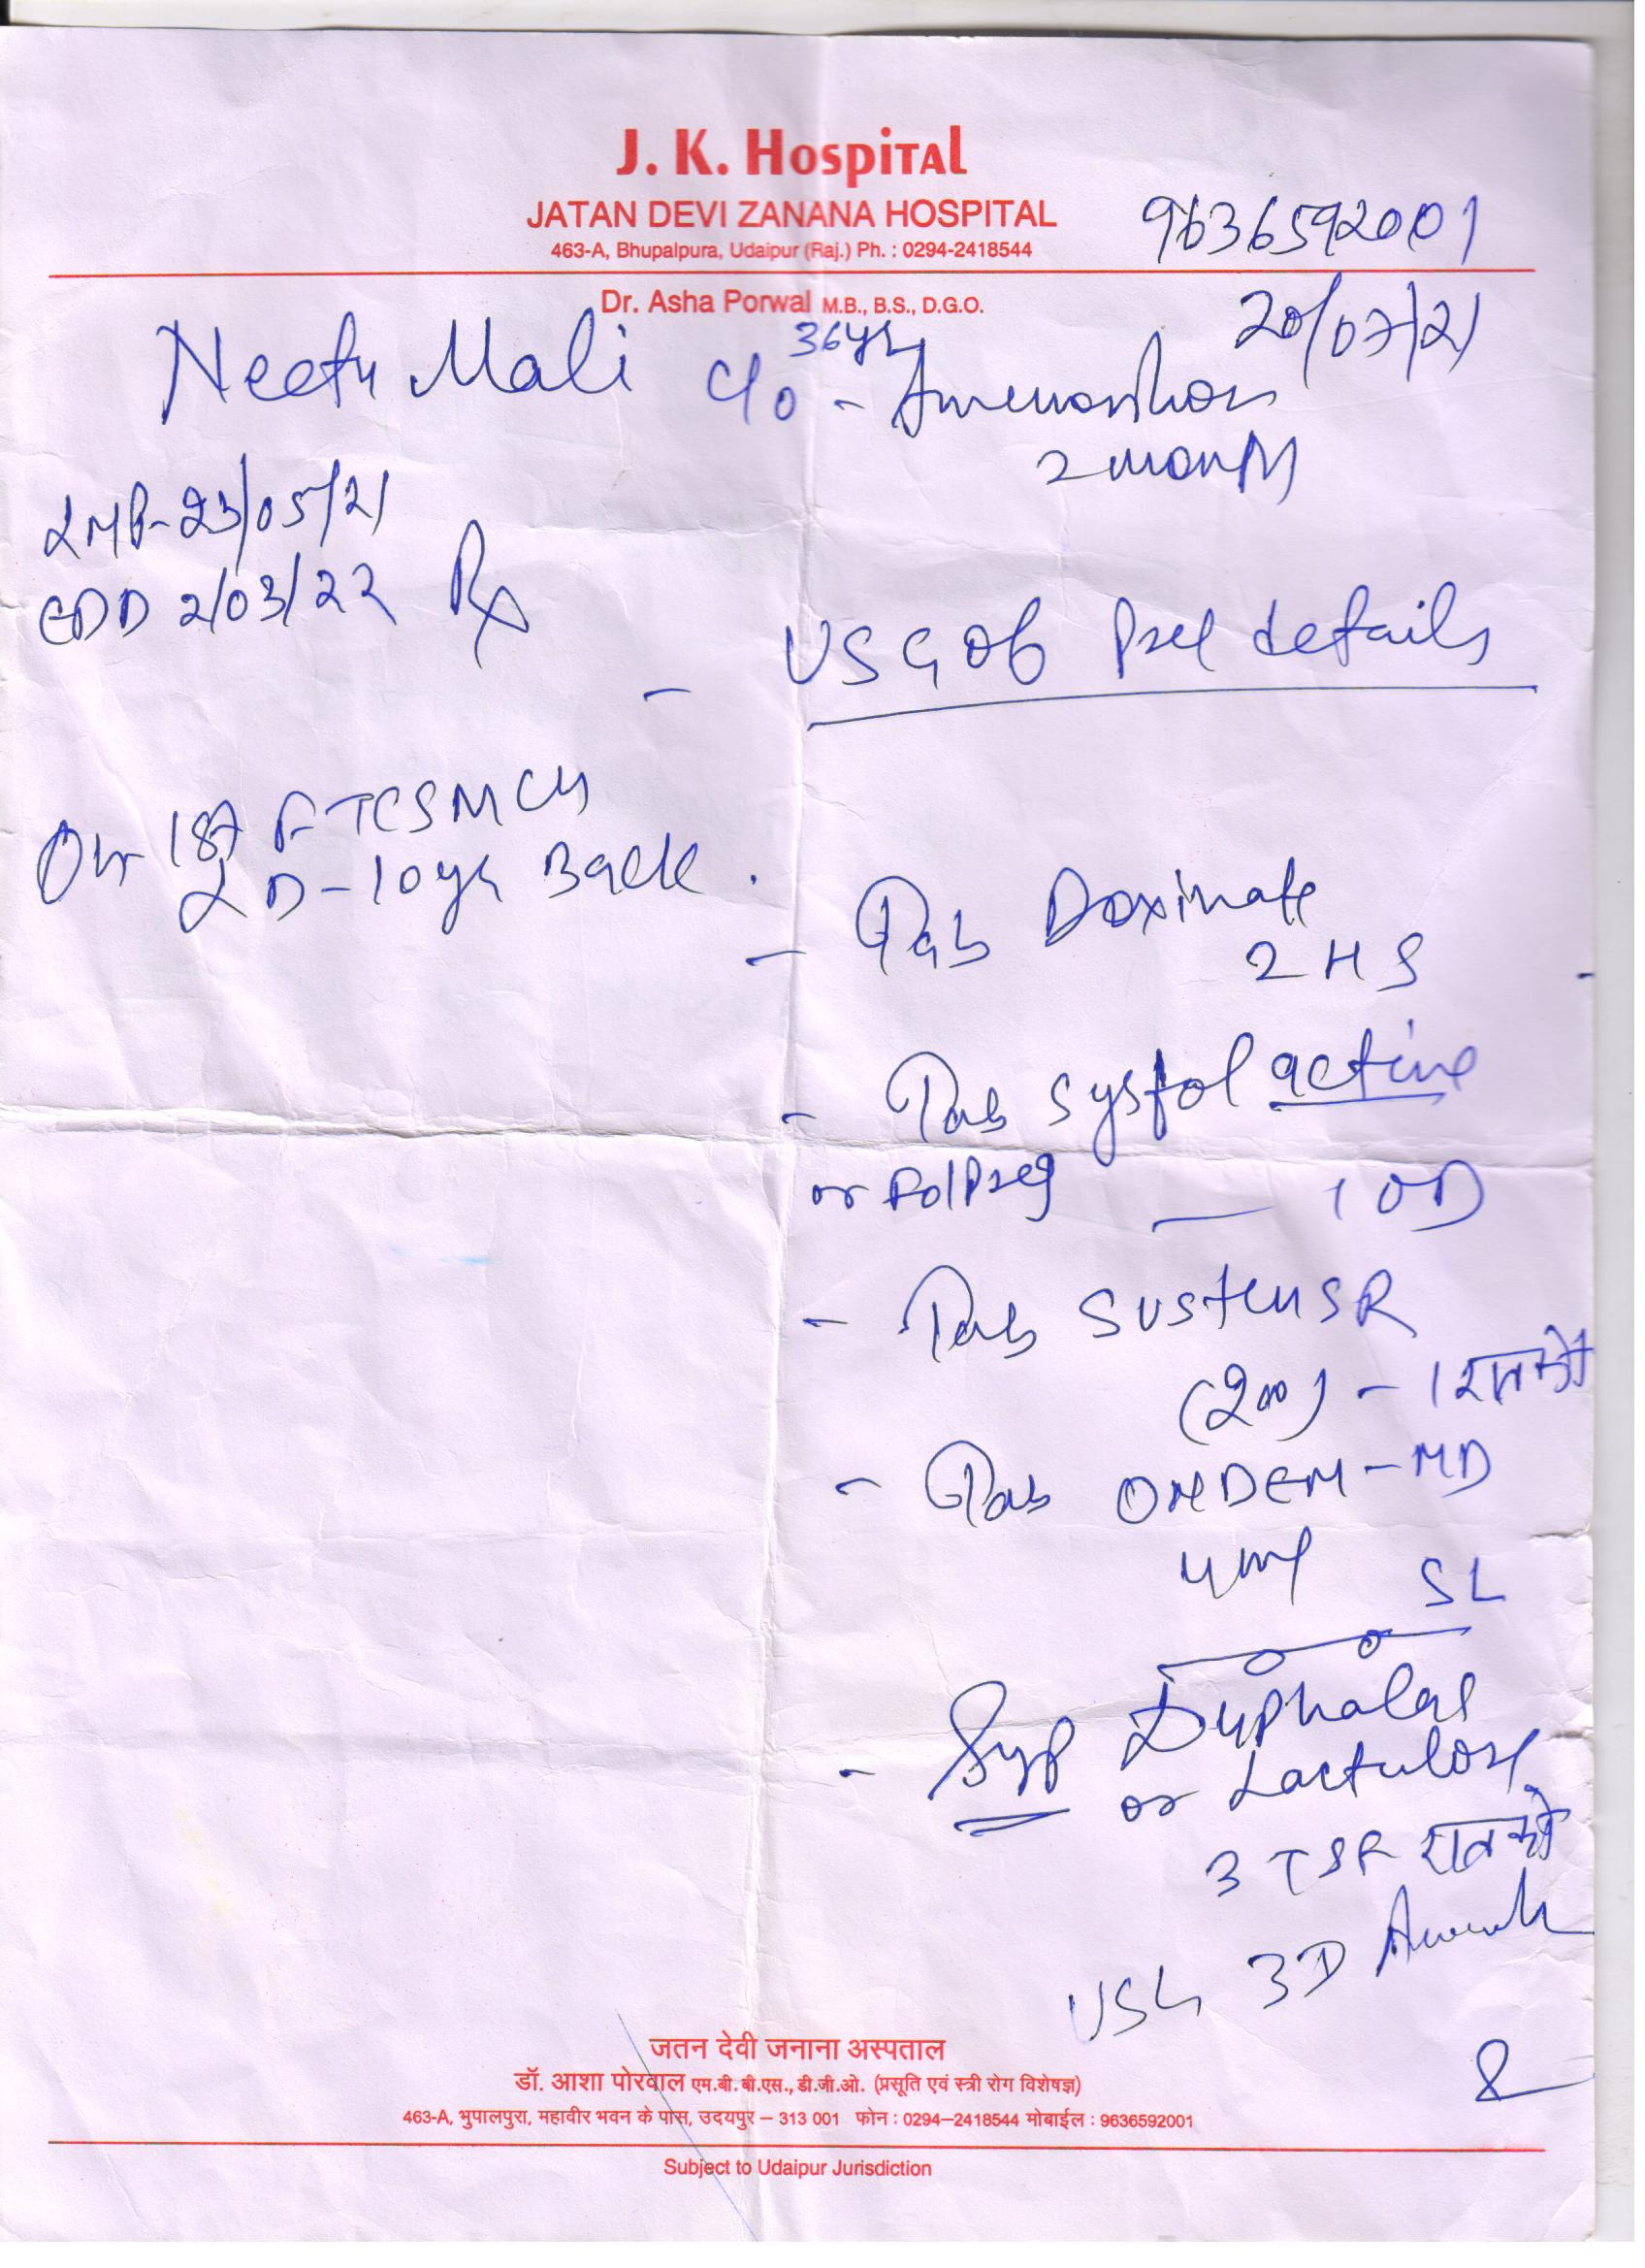 J. K. Hospital
JATAN DEVI ZANANA HOSPITAL
9636592001
463-A, Bhupalpura, Udaipur (Raj.) Ph. : 0294-2418544
Dr. Asha Porwal M.B., B.S., D.G.O.
20/07/21
Neetu Mali 36yrs
C/o -
2 month
LMP-23/05/21
EDD 2/03/22 Rx
- USG details
FTCS
LD-10yrs Back.
- Tab Doxinate
2 HS
- Tab sysfol active
or Folpreg — 1 OD
- Tab SUSTEN SR
(200) - 1 रात को
- Tab ONDEM-MD
4mg SL
- Syp Duphalac
or Lactulose
3 TSF रात को
USG 3D
जतन देवी जनाना अस्पताल
डॉ. आशा पोरवाल एम.बी.बी.एस., डी.जी.ओ. (प्रसूति एवं स्त्री रोग विशेषज्ञ)
463-A, भुपालपुरा, महावीर भवन के पास, उदयपुर – 313 001 फोन : 0294–2418544 मोबाईल : 9636592001
Subject to Udaipur Jurisdiction